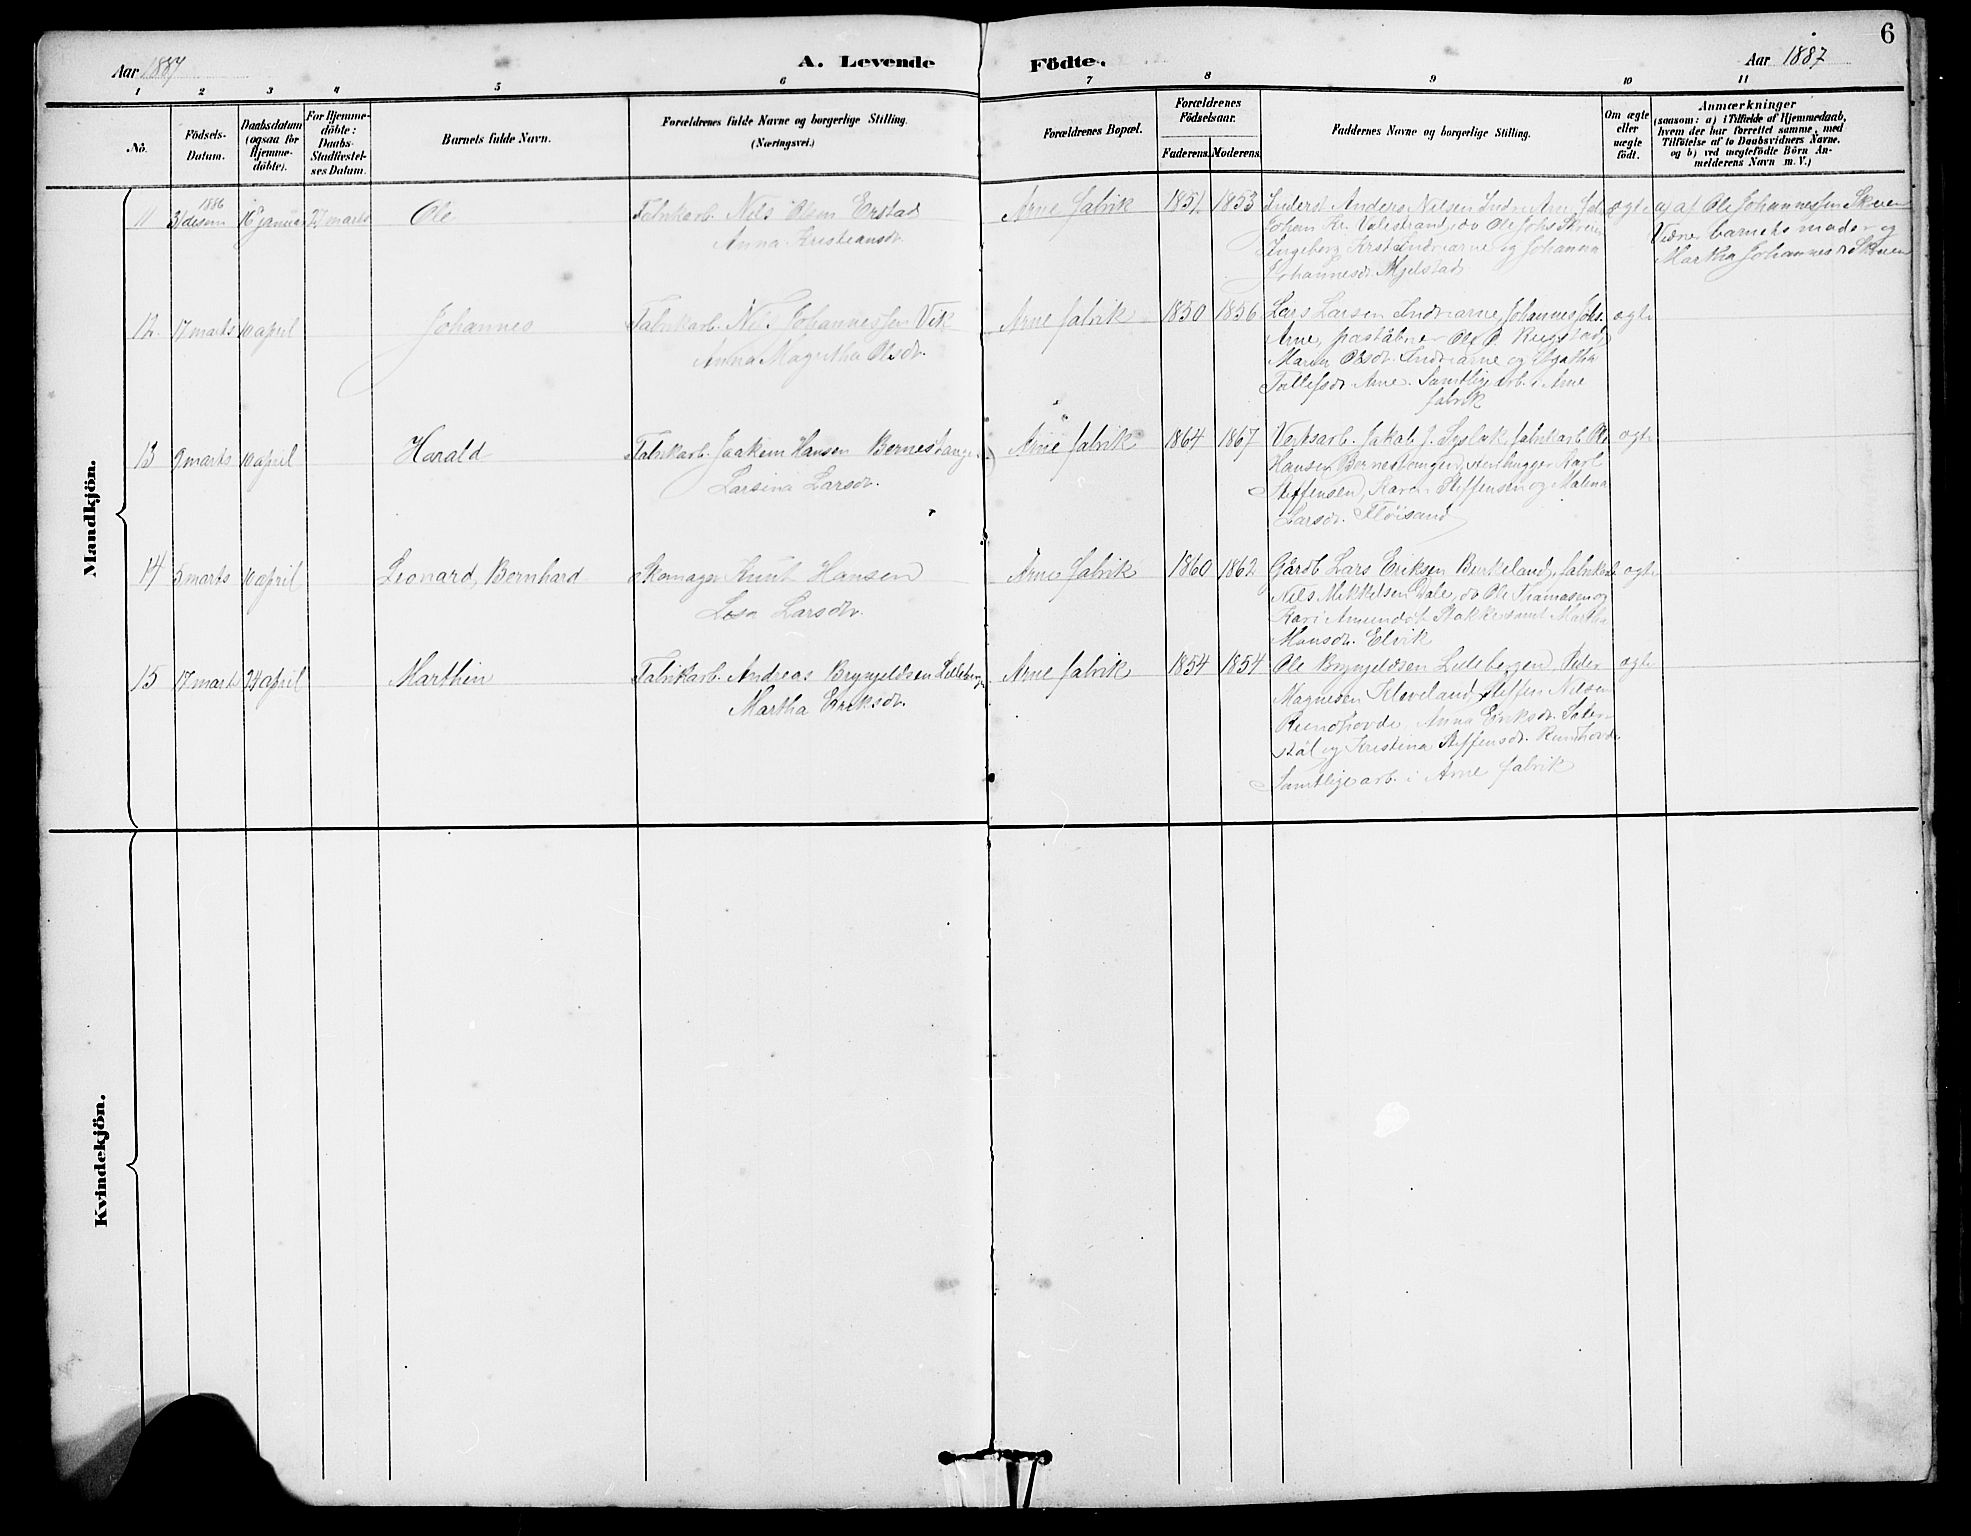 6
Aar 1887
A. Levende Fødte.
Aar 1887
1 2 3 4 5 6 7 8 9 10 11
No.
Födsels-Datum.
Daabsdatum (ogsaa for Hjemme-döbte).
For Hjemme-döbte: Daabs-Stadfæstel-ses Datum.
Barnets fulde Navn.
Forældrenes fulde Navne og borgerlige Stilling.
(Næringsvei.)
Forældrenes Bopæl.
Forældrenes Födselsaar.
Faderens. Moderens.
Faddernes Navne og borgerlige Stilling.
Om ægte eller uægte födt.
Anmærkninger
(saasom: a) i Tilfælde af Hjemmedaab,
hvem der har forrettet samme, med
Tilföielse af to Daabsvidners Navne.
og b) ved uegtefödte Börn An-
melderens Navn m. V.)
Mandkjön.
11 1886 31 desem 16 januar 27 marts Ole
Fabrikarb. Nils Olsen Erstad
Anna Kristiansdr.
Arne fabrik 1851 1853
Anders Nilsen Indre Arne
Johan Kr. Valestrand, do Ole Johs Skuen
Ingeborg Indrearne og Johanna
Johannesdr. Mjelstad
ægte
a) af Ole Johannessen Skuen
Vidner barnets moder og
Martha Johannesdr Skuen
12 17 marts 10 april Johannes
Fabrikarb. Nils Johannessen Vik
Anna Magretha Olsdr.
Arne fabrik 1850 1856
Lars Larsen Indrearne, Johannes Johs.
Arne, poståbner Ole
Maren Olsdr. Indrearne og Agatha
Tollefsdr Arne. Samtlige arb. i Arne
fabrik
ægte
13 9 marts 10 april Harald
Fabrikarb. Joakim Hansen Bernestangen
Larsina Larsdr.
Arne fabrik 1864 1867
Verksarb. Jakob J. Syslak, fabrikarb. Ole
Hansen Bernestangen, stenhugger Karl
Steffensen, Karen Steffensen og Malena
Larsdr. Flöisand
ægte
14 5 marts 10 april Leonard, Bernhard
Skomager Knut Hansen
Lisa Larsdr.
Arne fabrik 1860 1862
Gårdb Lars Eriksen Birkeland, fabrikarb.
Nils Mikkelsen Dale, do Ole Thomasen og
Kari Amundsdt. Stokke samt Martha
Monsdr. Elvik
ægte
15 17 marts 24 april Marthin
Fabrikarb. Andreas Brynjeldsen Lillebergen
Martha Eriksdr.
Arne fabrik 1854 1854
Ole Brynjeldsen Lillebergen, Peder
Magnesen Kleveland, Steffen Nilsen
Rundhovde, Anna Eriksdr. Sæter-
stöl og Kristina Steffensdr. Rundhovde
Samtlige arb. i Arne fabrik
ægte
Kvindekjön.